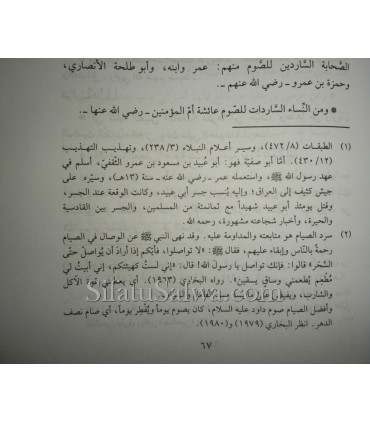 الصّحابة السّاردين للصّوم منهم: عمر وابنه، وأبو طلحة الأنصاري،
وحمزة بن عمرو ـ رضي الله عنهم ـ.
● ومن النِّساء السّاردات للصّوم عائشة أمّ المؤمنين ـ رضي الله عنها ـ.
(١) الطبقات (٤٧٢/٨)، وسير أعلام النبلاء (٢٣٨/٣)، وتهذيب التهذيب
(٤٣٠/١٢). أمّا أبو صفيّة فهو: أبو عُبيد بن مسعود بن عمرو الثّقفيّ، أسلم في
عهد رسول الله ﷺ، واستعمله عمر ـ رضي الله عنه ـ سنة (١٣هـ)، وسيّره على
جيش كثيف إلى العراق؛ وإليه يُنسب جسر أبي عبيد، وكانت الوقعة عند الجسر،
وقتل يومئذ أبو عبيد شهيداً مع ثمانمئة من المسلمين، والجسر بين القادسية
والحيرة، وأخبار شجاعته مشهورة، رحمه الله.
(٢) سرد الصيام هو متابعته والمداومة عليه. وقد نهى النبي ﷺ عن الوصال في الصيام
رحمةً بالنّاس وإبقاء عليهم، فقال ﷺ: «لا تواصلوا، فأيّكم إذا أراد أن يُواصل حتّى
السَّحَر» قالوا: فإنّك تواصل يا رسول الله! قال: «إنّي لستُ كهيئتكم، إنّي أبيتُ لي
مُطْعِم يُطعمني وساقٍ يسقين». رواه البخاري (١٩٦٣). أي يعطيني قوة الآكل
والشارب، ويفيض
وأفضل الصيام صوم داود عليه السلام، كان يصوم يوماً، ويُفطِر يوماً، أي صام نصف
الدهر. انظر البخاري (١٩٧٩) و(١٩٨٠).
٦٧
SilatuSalwa.com